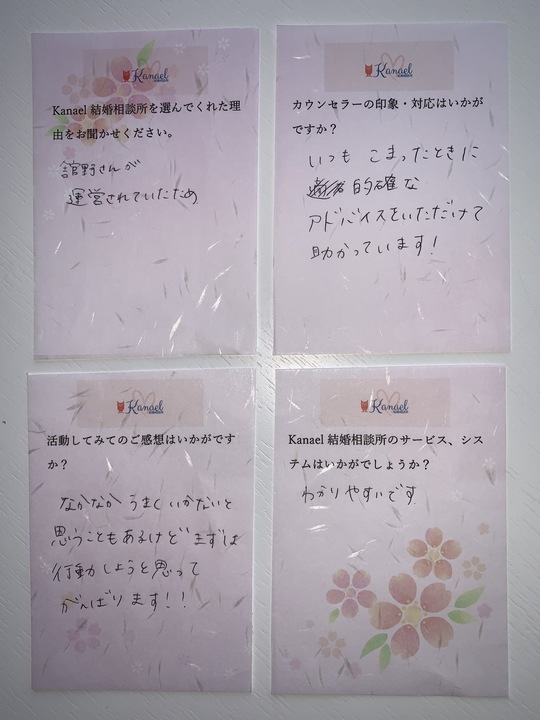 Kanael
Kanael 結婚相談所を選んでくれた理
由をお聞かせください。
舘野さんが
運営されていたため
Kanael
カウンセラーの印象・対応はいかが
ですか？
いつも こまったときに
的確な
アドバイスをいただけて
助かっています！
Kanael
活動してみてのご感想はいかがです
か？
なかなか うまくいかないと
思うこともあるけど まずは
行動しようと思って
がんばります！！
Kanael
Kanael 結婚相談所のサービス、シス
テムはいかがでしょうか？
わかりやすいです